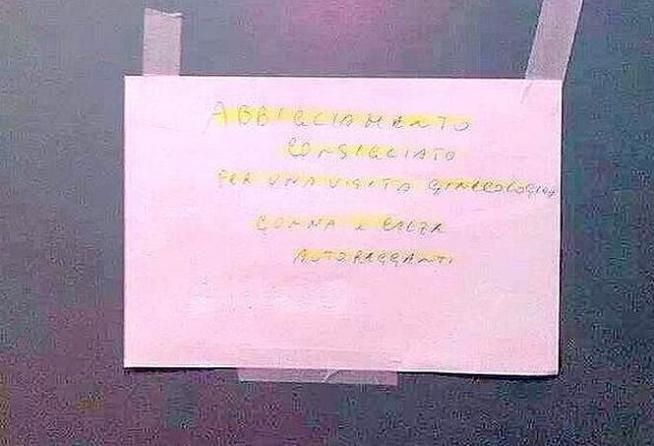 ABBIGLIAMENTO
CONSIGLIATO
PER UNA VISITA GINECOLOGICA
GONNA E CALZE
AUTOREGGENTI